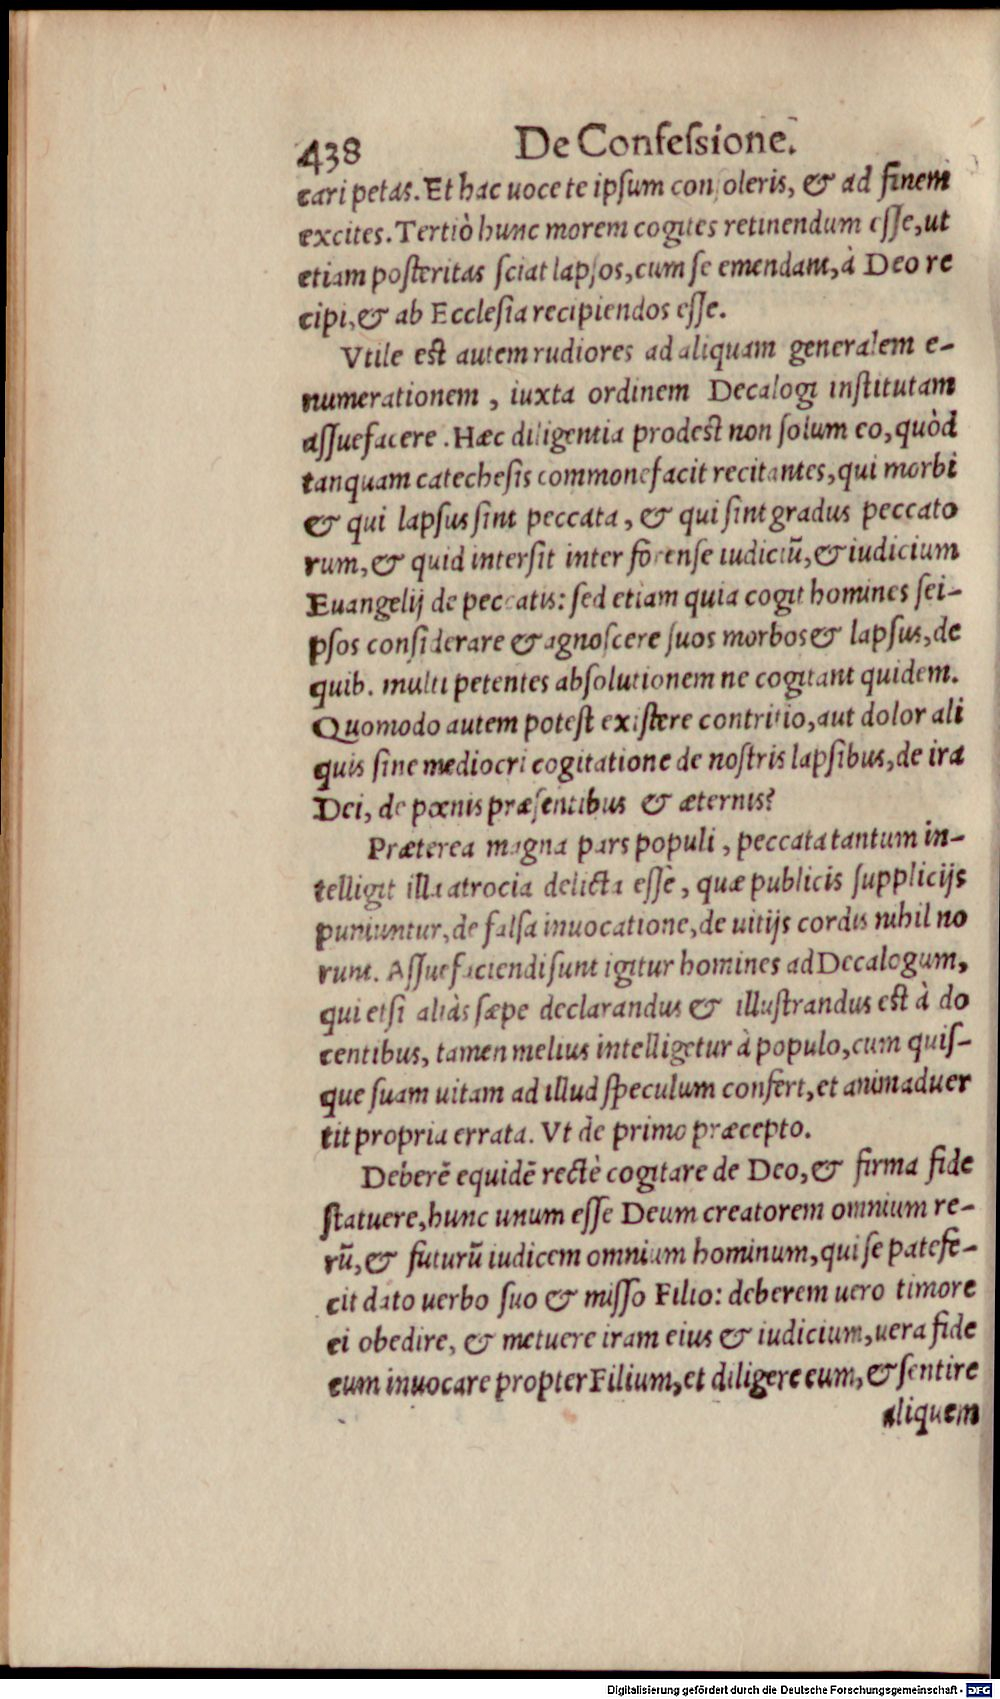 438 De Confeſsione.
cari petas. Et hac uoce te ipſum conſoleris, & ad finem
excites. Tertiò hunc morem cogites retinendum eſſe, ut
etiam poſteritas ſciat lapſos, cum ſe emendant, à Deo re
cipi, & ab Eccleſia recipiendos eſſe.
Vtile est autem rudiores ad aliquam generalem e-
numerationem, iuxta ordinem Decalogi inſtitutam
aſſuefacere. Hæc diligentia prodest non ſolum eo, quòd
tanquam catecheſis commonefacit recitantes, qui morbi
& qui lapſus ſint peccata, & qui ſint gradus peccato
rum, & quid interſit inter forenſe iudiciũ, & iudicium
Euangelij de peccatis: ſed etiam quia cogit homines ſei-
pſos conſiderare & agnoſcere ſuos morbos & lapſus, de
quib. multi petentes abſolutionem ne cogitant quidem.
Quomodo autem poteſt exiſtere contritio, aut dolor ali
quis ſine mediocri cogitatione de noſtris lapſibus, de ira
Dei, de pœnis præſentibus & æternis?
Præterea magna pars populi, peccata tantum in-
telligit illa atrocia delicta eſſe, quæ publicis ſupplicijs
puniuntur, de falſa inuocatione, de uitijs cordis nihil no
runt. Aſſuefaciendi ſunt igitur homines ad Decalogum,
qui etſi aliàs ſæpe declarandus & illuſtrandus est à do
centibus, tamen melius intelligetur à populo, cum quiſ-
que ſuam uitam ad illud ſpeculum confert, et animaduer
tit propria errata. Vt de primo præcepto.
Deberẽ equidẽ rectè cogitare de Deo, & firma fide
ſtatuere, hunc unum eſſe Deum creatorem omnium re-
rũ, & futurũ iudicem omnium hominum, qui ſe patefe-
cit dato uerbo ſuo & miſſo Filio: deberem uero timore
ei obedire, & metuere iram eius & iudicium, uera fide
eum inuocare propter Filium, et diligere eum, & ſentire
aliquem
Digitalisierung gefördert durch die Deutsche Forschungsgemeinschaft - DFG